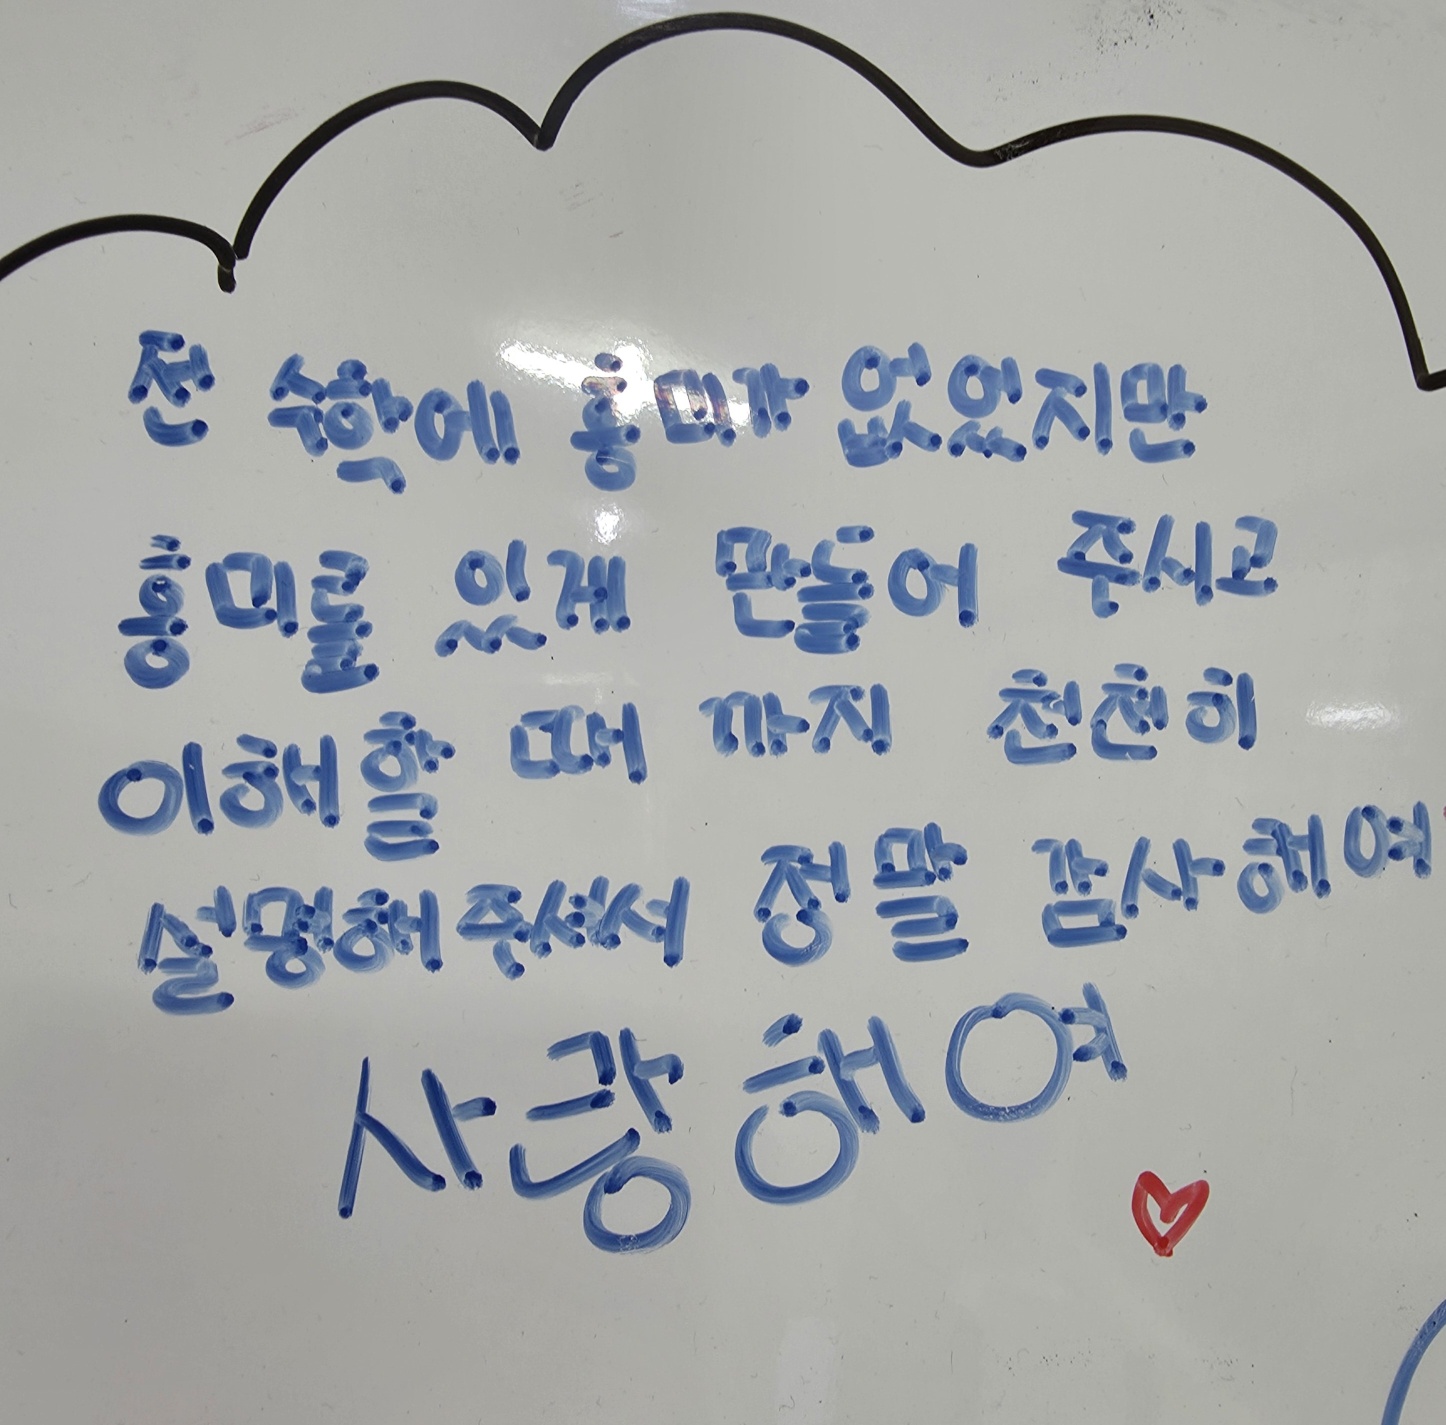 전 수학에 흥미가 없었지만
흥미를 있게 만들어 주시고
이해할 때 까지 천천히
설명해주셔서 정말 감사해여
사랑해여